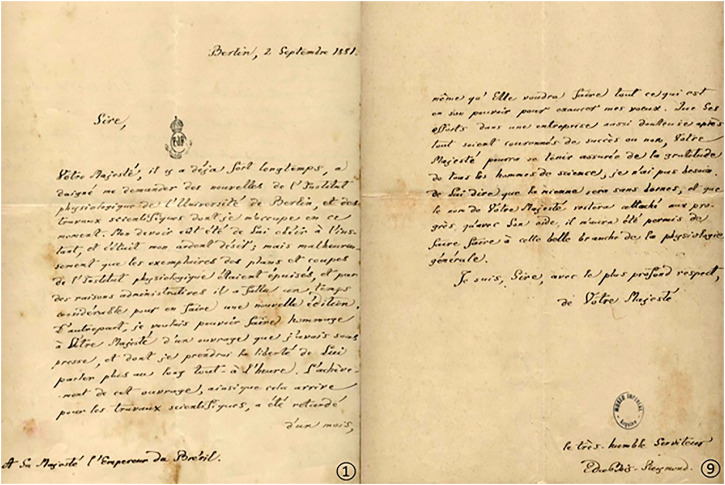 Berlin, 2 Septembre 1881.
Sire,
Votre Majesté, il y a déjà fort longtemps, a
daigné me demander des nouvelles de l'Institut
physiologique de l'Université de Berlin, et des
travaux scientifiques dont je m'occupe en ce
moment. Mon devoir eût été de Lui obéir à l'ins-
tant, et c'était mon ardent désir; mais malheureu-
sement que les exemplaires des plans et coupes
de l'Institut physiologique étaient épuisés, et par
des raisons administratives il a fallu un temps
considérable pour en faire une nouvelle édition.
D'autrepart, je voulais pouvoir faire hommage
à Votre Majesté d'un ouvrage que j'avais sous
presse, et dont je prendrai la liberté de Lui
parler plus au long tout-à l'heure. L'achève-
ment de cet ouvrage, ainsi que cela arrive
pour les travaux scientifiques, a été retardé
d'un mois,
A Sa Majesté l'Empereur du Brésil.
1
même qu'Elle voudra faire tout ce qui est
en son pouvoir pour exaucer mes vœux. Que ses
efforts dans une entreprise aussi douteuse après
tout soient couronnés de succès ou non, Votre
Majesté pourra se tenir assurée de la gratitude
de tous les hommes de science; je n'ai pas besoin
de Lui dire que la mienne sera sans bornes, et que
le nom de Votre Majesté restera attaché aux pro-
grès qu'avec Son aide il m'aura été permis de
faire faire à cette belle branche de la physiologie
générale.
Je suis, Sire, avec le plus profond respect,
de Votre Majesté
MUSEU IMPERIAL
Arquivo
le très-humble Serviteur
E du Bois-Reymond.
9